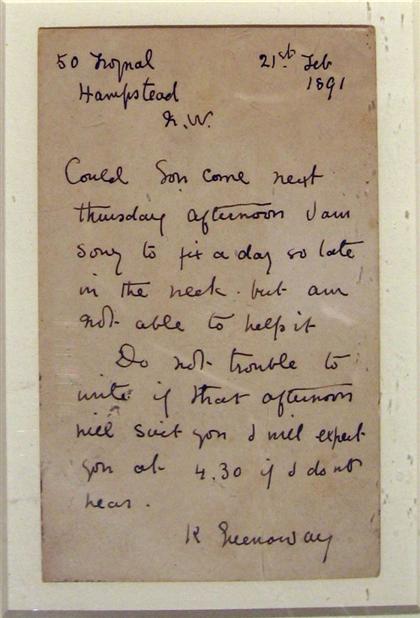 50 Frognal
21st Feb
Hampstead
1891
N.W.
Could you come next
thursday afternoon I am
sorry to fix a day so late
in the week. but am
not able to help it
Do not trouble to
write if that afternoon
will suit you I will expect
you at 4.30 if I do not
hear.
K Greenaway